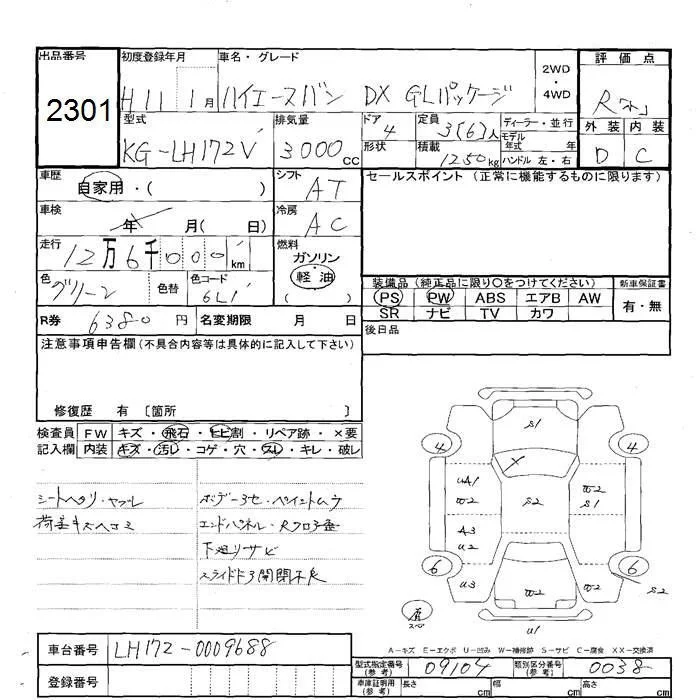 出品番号 初度登録年月 車名・グレード 2WD・4WD 評価点
2301 H11 1月 ハイエースバン DX GLパッケージ
型式 排気量 ドア 定員 ディーラー・並行 外装 内装
KG-LH172V 3000cc 4 3(6)人 モデル年式 年 D C
形状 積載 1250kg ハンドル 左・右
車歴 自家用・( ) シフト AT セールスポイント (正常に機能するものに限ります)
車検 年 月( 日) 冷房 AC
走行 12万6千000km 燃料 ガソリン 軽油 ( )
色 グリーン 色替 色コード 6L1
装備品 (純正品に限り○をつけてください) 新車保証書
PS PW ABS エアB AW 有・無
SR ナビ TV カワ
R券 6380円 名変期限 月 日 後日品
注意事項申告欄(不具合内容等は具体的に記入して下さい)
修復歴 有 〔箇所 〕
検査員 FW キズ・飛石・ヒビ割・リペア跡・×要
記入欄 内装 キズ・汚レ・コゲ・穴・スレ・キレ・破レ
シートヘタリ・ヤブレ ボデー3セ・ペイントムラ
荷室キズヘコミ エンドパネル・Rフロア歪
下廻りサビ
スライドドア開閉不良
S1
4 4
X
UA1 W2 S2 W2 S1
A3 U2
6 6
U3 W2 W2 S2
U1
A-キズ E-エクボ U-凹み W-補修跡 S-サビ C-腐食 XX-交換済
車台番号 LH172-0009688
型式指定番号(参考) 09104 類別区分番号(参考) 0038
登録番号 車庫証明用(参考) 長さ cm 幅 cm 高さ cm